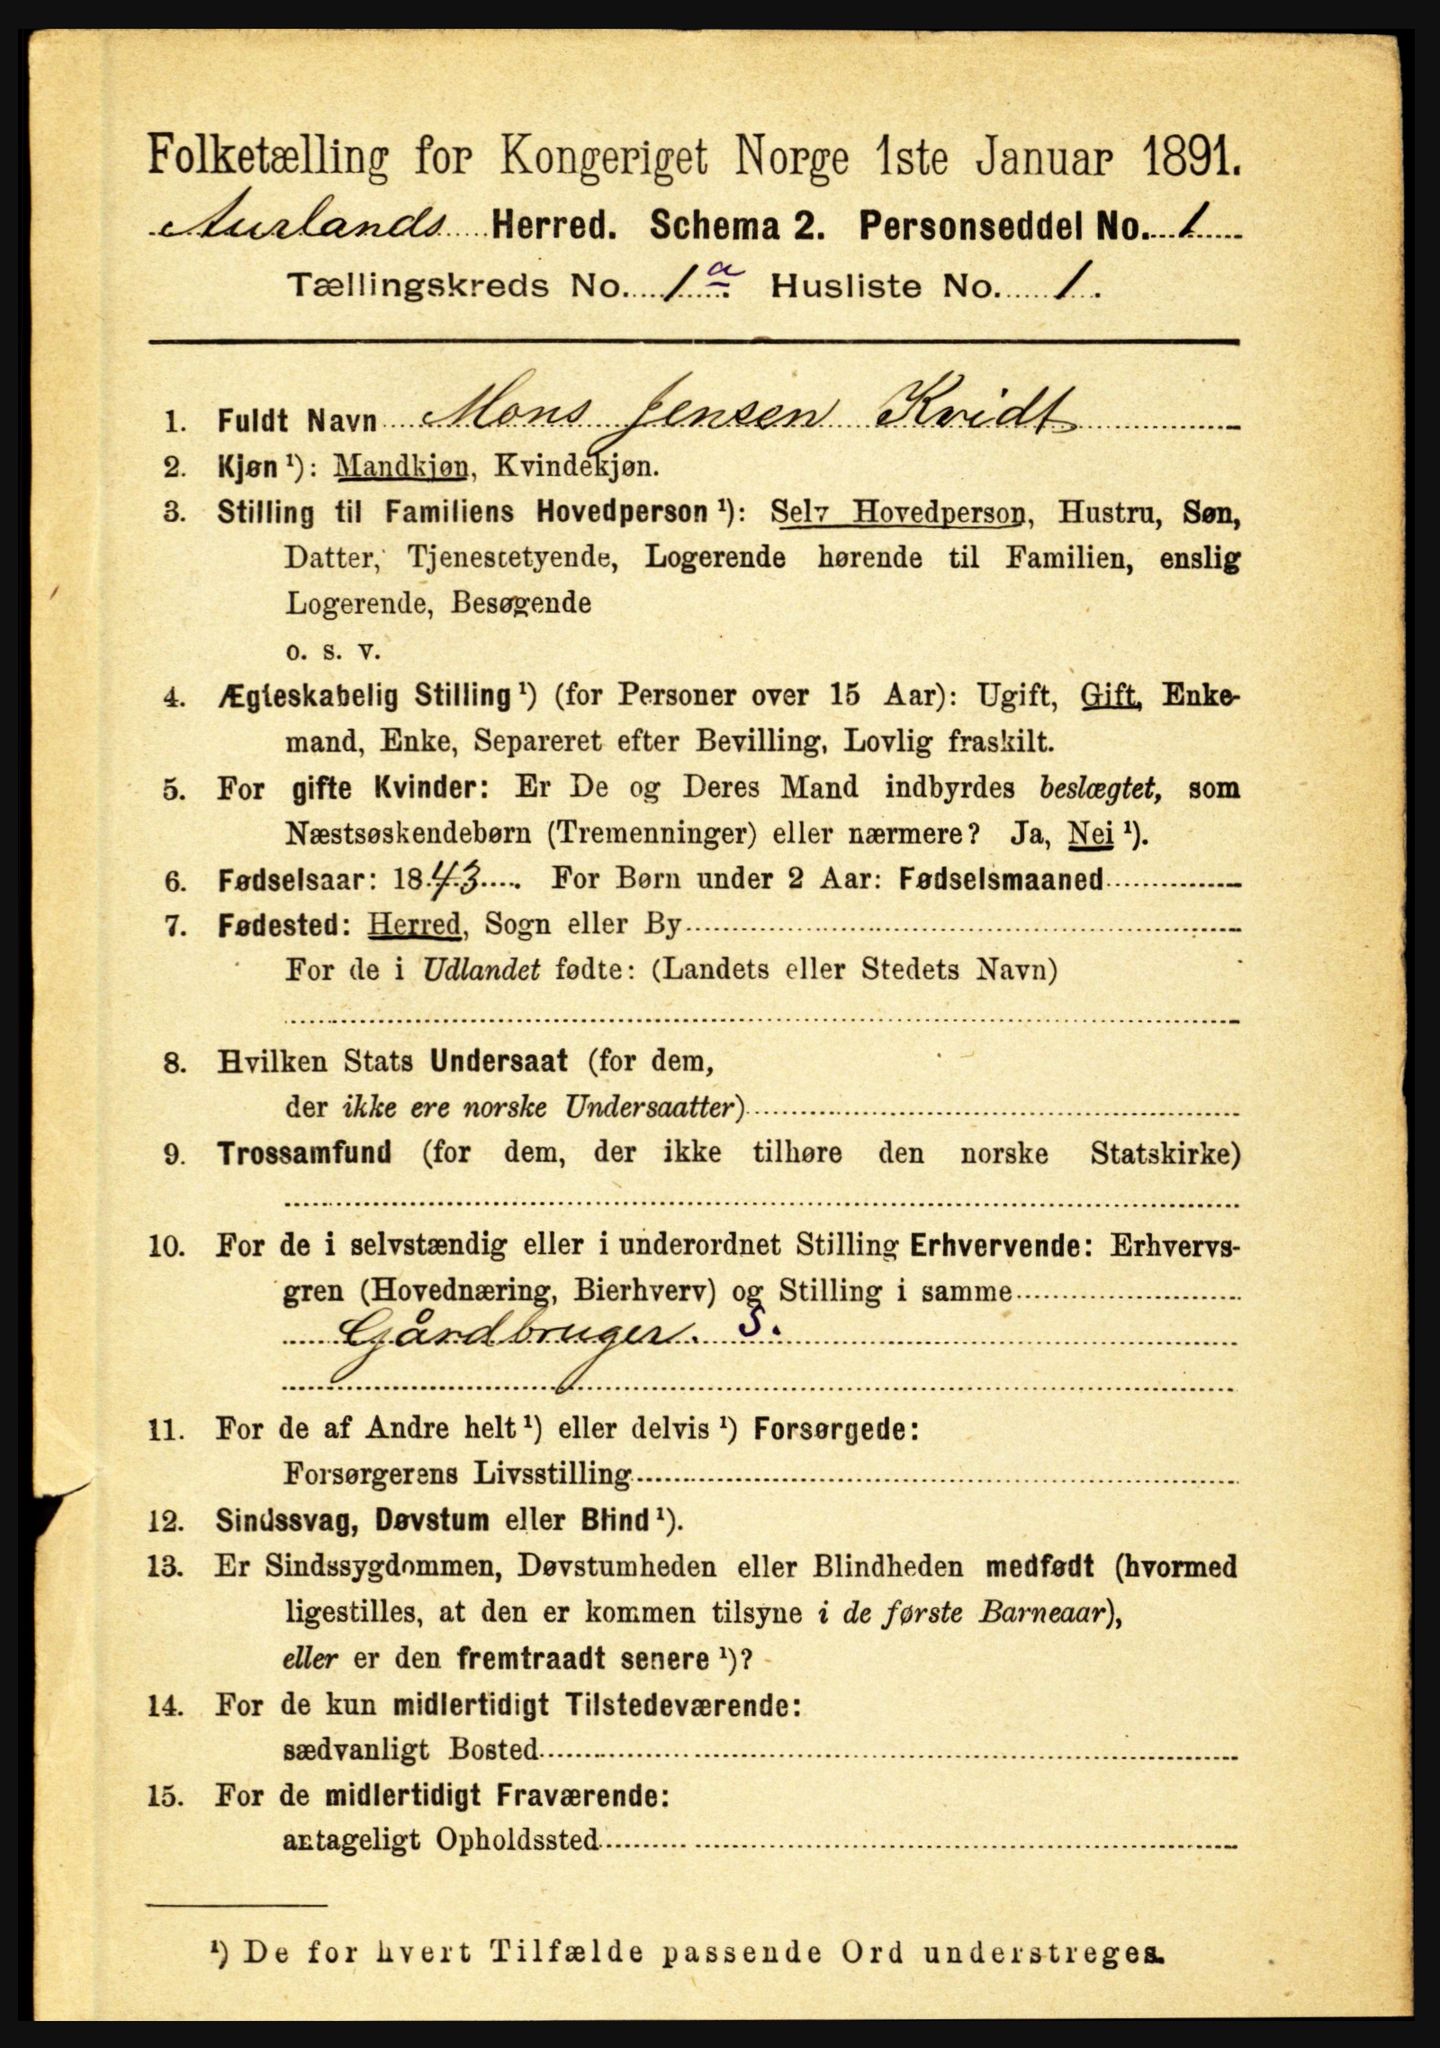 Folketælling for Kongeriget Norge 1ste Januar 1891.
Aurlands Herred. Schema 2. Personseddel No. 1
Tællingskreds No. 1a. Husliste No. 1.
1. Fuldt Navn Mons Jensen Kvidt
2. Kjøn ¹): Mandkjøn, Kvindekjøn.
3. Stilling til Familiens Hovedperson ¹): Selv Hovedperson, Hustru, Søn,
Datter, Tjenestetyende, Logerende hørende til Familien, enslig
Logerende, Besøgende
o. s. v.
4. Ægteskabelig Stilling ¹) (for Personer over 15 Aar): Ugift, Gift, Enke-
mand, Enke, Separeret efter Bevilling, Lovlig fraskilt.
5. For gifte Kvinder: Er De og Deres Mand indbyrdes beslægtet, som
Næstsøskendebørn (Tremenninger) eller nærmere? Ja, Nei ¹).
6. Fødselsaar: 1843. For Børn under 2 Aar: Fødselsmaaned
7. Fødested: Herred, Sogn eller By
For de i Udlandet fødte: (Landets eller Stedets Navn)
8. Hvilken Stats Undersaat (for dem,
der ikke ere norske Undersaatter)
9. Trossamfund (for dem, der ikke tilhøre den norske Statskirke)
10. For de i selvstændig eller i underordnet Stilling Erhvervende: Erhvervs-
gren (Hovednæring, Bierhverv) og Stilling i samme
Gårdbruger. S.
11. For de af Andre helt ¹) eller delvis ¹) Forsørgede:
Forsørgerens Livsstilling
12. Sindssvag, Døvstum eller Blind ¹).
13. Er Sindssygdommen, Døvstumheden eller Blindheden medfødt (hvormed
ligestilles, at den er kommen tilsyne i de første Barneaar),
eller er den fremtraadt senere ¹)?
14. For de kun midlertidigt Tilstedeværende:
sædvanligt Bosted
15. For de midlertidigt Fraværende:
antageligt Opholdssted
¹) De for hvert Tilfælde passende Ord understreges.